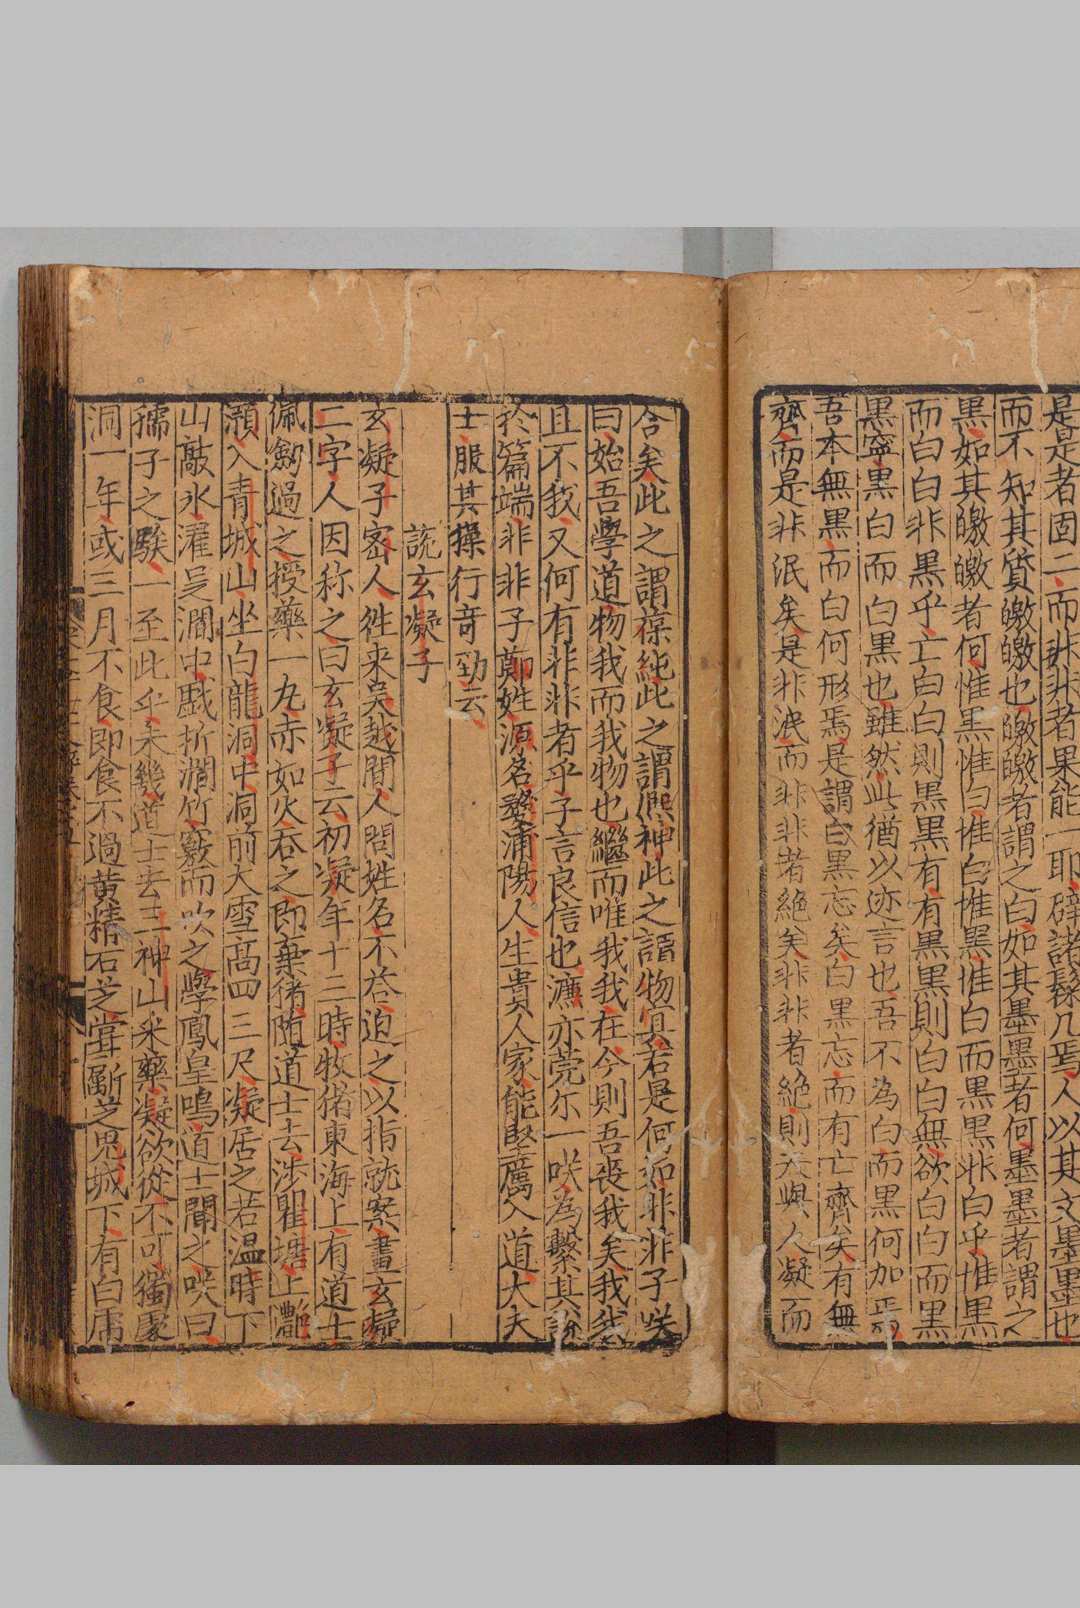 是是者固二而非非者果能一耶辟諸髹几焉人以其文墨墨也
而不知其質皦皦也皦皦者謂之白如其墨墨者何墨墨者謂之
黒如其皦皦者何惟黒惟白惟白惟黒惟白而黒黒非白乎惟黒
而白白非黒乎亡白白則黒黒有有黒黒則白白無欲白白而黒
黒寧黒白而白黒也雖然此猶以迹言也吾不為白而黒何加焉
吾本無黒而白何形焉是謂白黒忘矣白黒忘而有亡齊矣有無
齊而是非泯矣是非泯而非非者絶矣非非者絶則天與人凝而
合矣此之謂葆純此之謂熈神此之謂物冥若是何如非非子咲
曰始吾學道物我而我物也繼而唯我我在今則吾喪我矣我我
且不我又何有非非者乎子言良信也濂亦莞尓一咲為繫其說
於篇端非非子鄭姓源名婺浦陽人生貴人家能堅厲入道大夫
士服其操行竒勁云
說玄凝子
玄凝子宻人徃来吳越間人問姓名不荅迫之以指就案畫玄凝
二字人因称之曰玄凝子云初凝年十三時牧猪東海上有道士
佩劔過之授藥一丸赤如火吞之即棄猪随道士去渉瞿塘上灔
澦入青城山坐白龍洞中洞前大雪髙四三尺凝居之若温時下
山敲氷濯足澗中戱折澗竹竅而吹之學鳳皇鳴道士聞之咲曰
孺子之騃一至此乎未幾道士去三神山采藥凝欲從不可獨處
洞一年或三月不食即食不過黄精石芝甞斸芝鬼城下有白虎